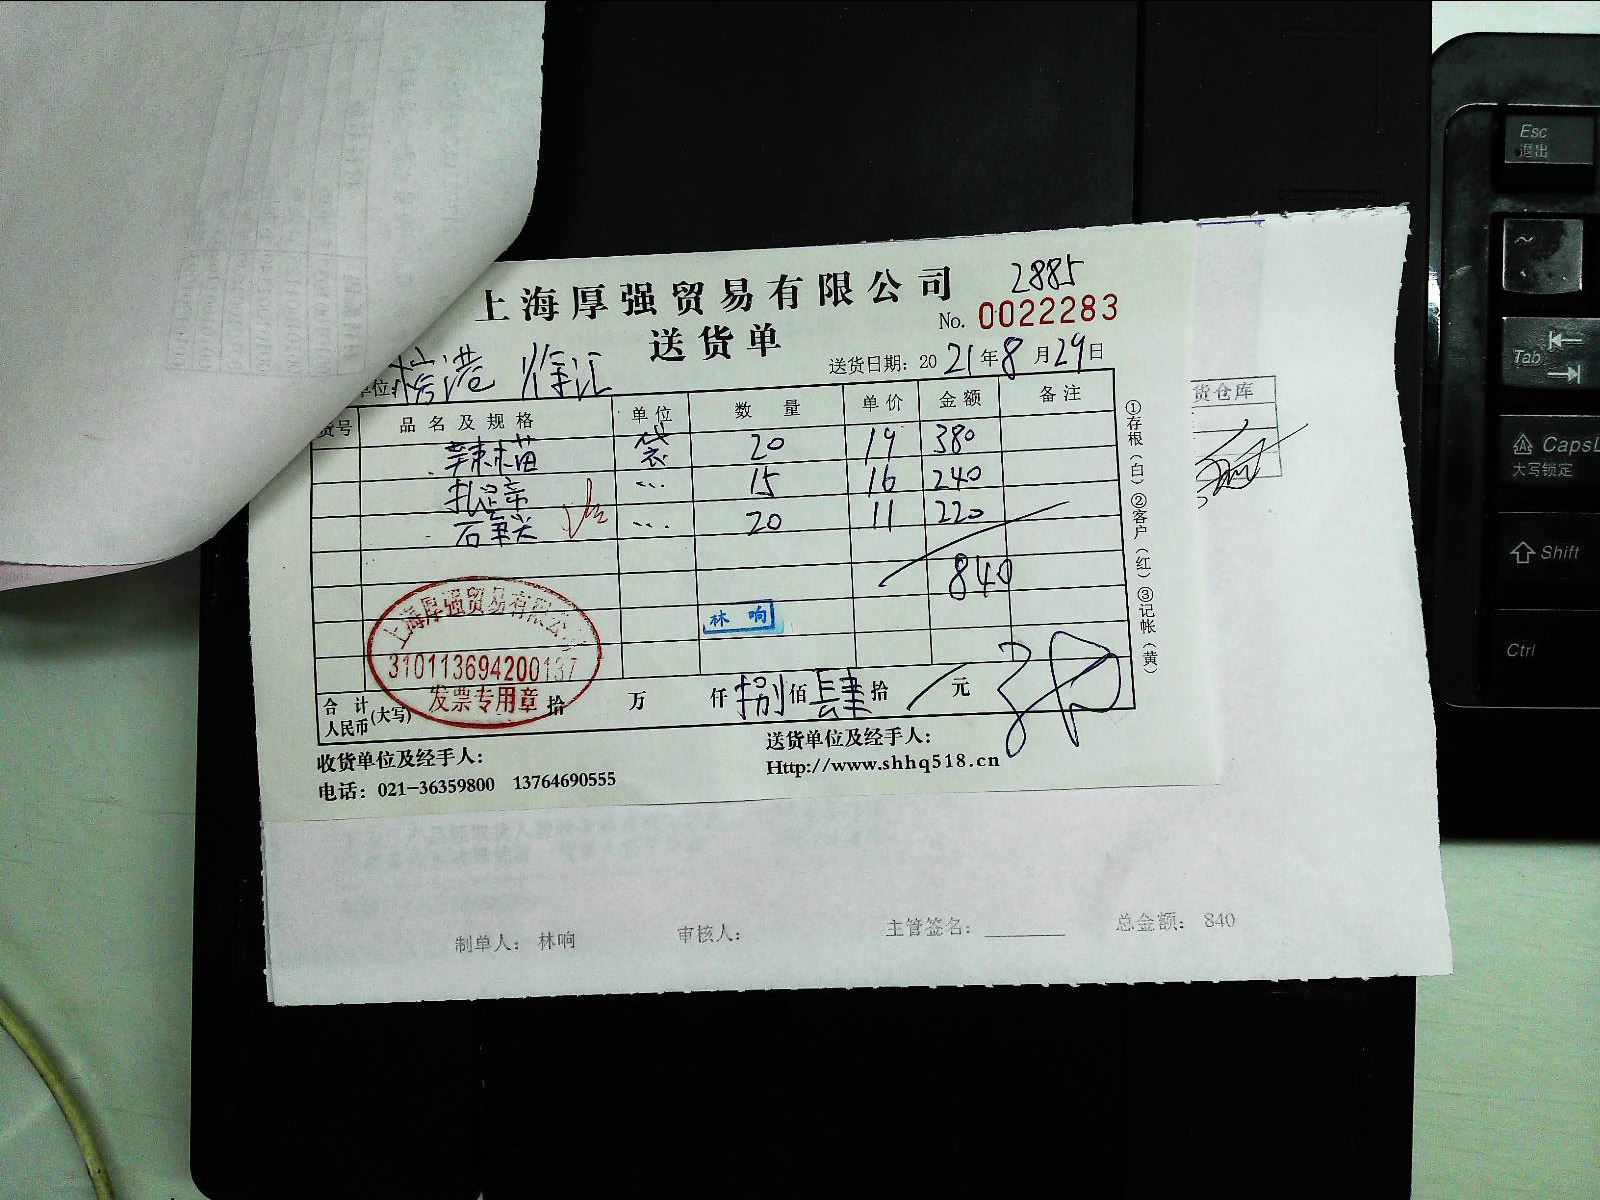 上海厚强贸易有限公司
2885
No. 0022283
送货单
送货日期: 2021年8月29日
单位:
货号 品名及规格 单位 数量 单价 金额 备注
袋 20 19 380
15 16 240
20 11 220
840
林响
上海厚强贸易有限公司
310113694200137
发票专用章
合计人民币(大写) 拾 万 仟 捌 佰 肆 拾 元
①存根(白)②客户(红)③记帐(黄)
收货单位及经手人: 送货单位及经手人:
电话: 021-36359800 13764690555 Http://www.shhq518.cn
货仓库
制单人: 林响 审核人: 主管签名: ________ 总金额: 840
Esc
退出
~
Tab
Caps
大写锁定
Shift
Ctrl